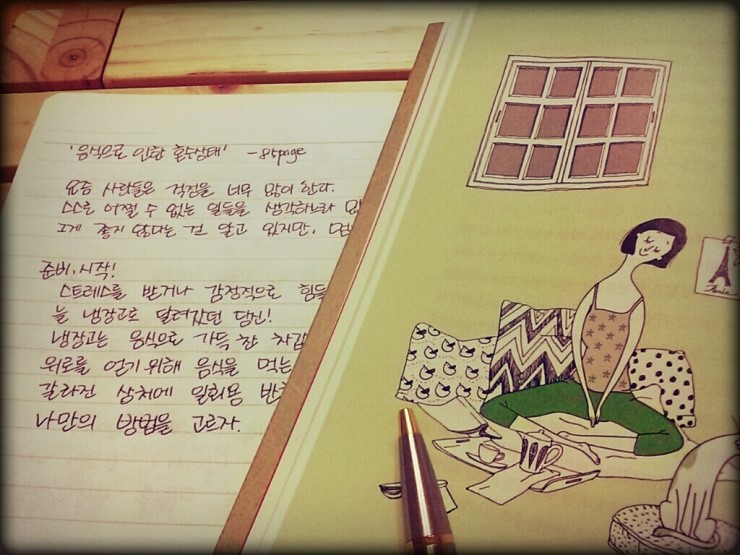 '음식으로 인한 혼수상태' -81page
요즘 사람들은 걱정을 너무 많이 한다.
스스로 어쩔 수 없는 일들을 생각하느라
그게 좋지 않다는 건 알고 있지만,
준비, 시작!
스트레스를 받거나 감정적으로 힘들
늘 냉장고로 달려갔던 당신!
냉장고는 음식으로 가득 찬 차갑
위로를 얻기 위해 음식을 먹는
갈라진 상처에 일회용 반창
나만의 방법을 고르자.